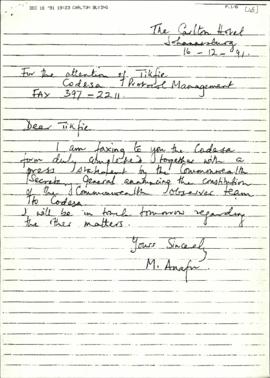 DEC 16 '91 19:23 CARLTON
The Carlton Hotel
Johannesburg
16-12-91.
For the attention of Tikfie
Codesa Protocol Management
FAX 397-2211.
Dear Tikfie
I am faxing to you the Codesa
form duly completed together with a
press statement by the Commonwealth
Secretary General the constitution
of the Commonwealth observer team
to Codesa
I will be in touch tomorrow regarding
the other matters.
Yours Sincerely
M. Anafu